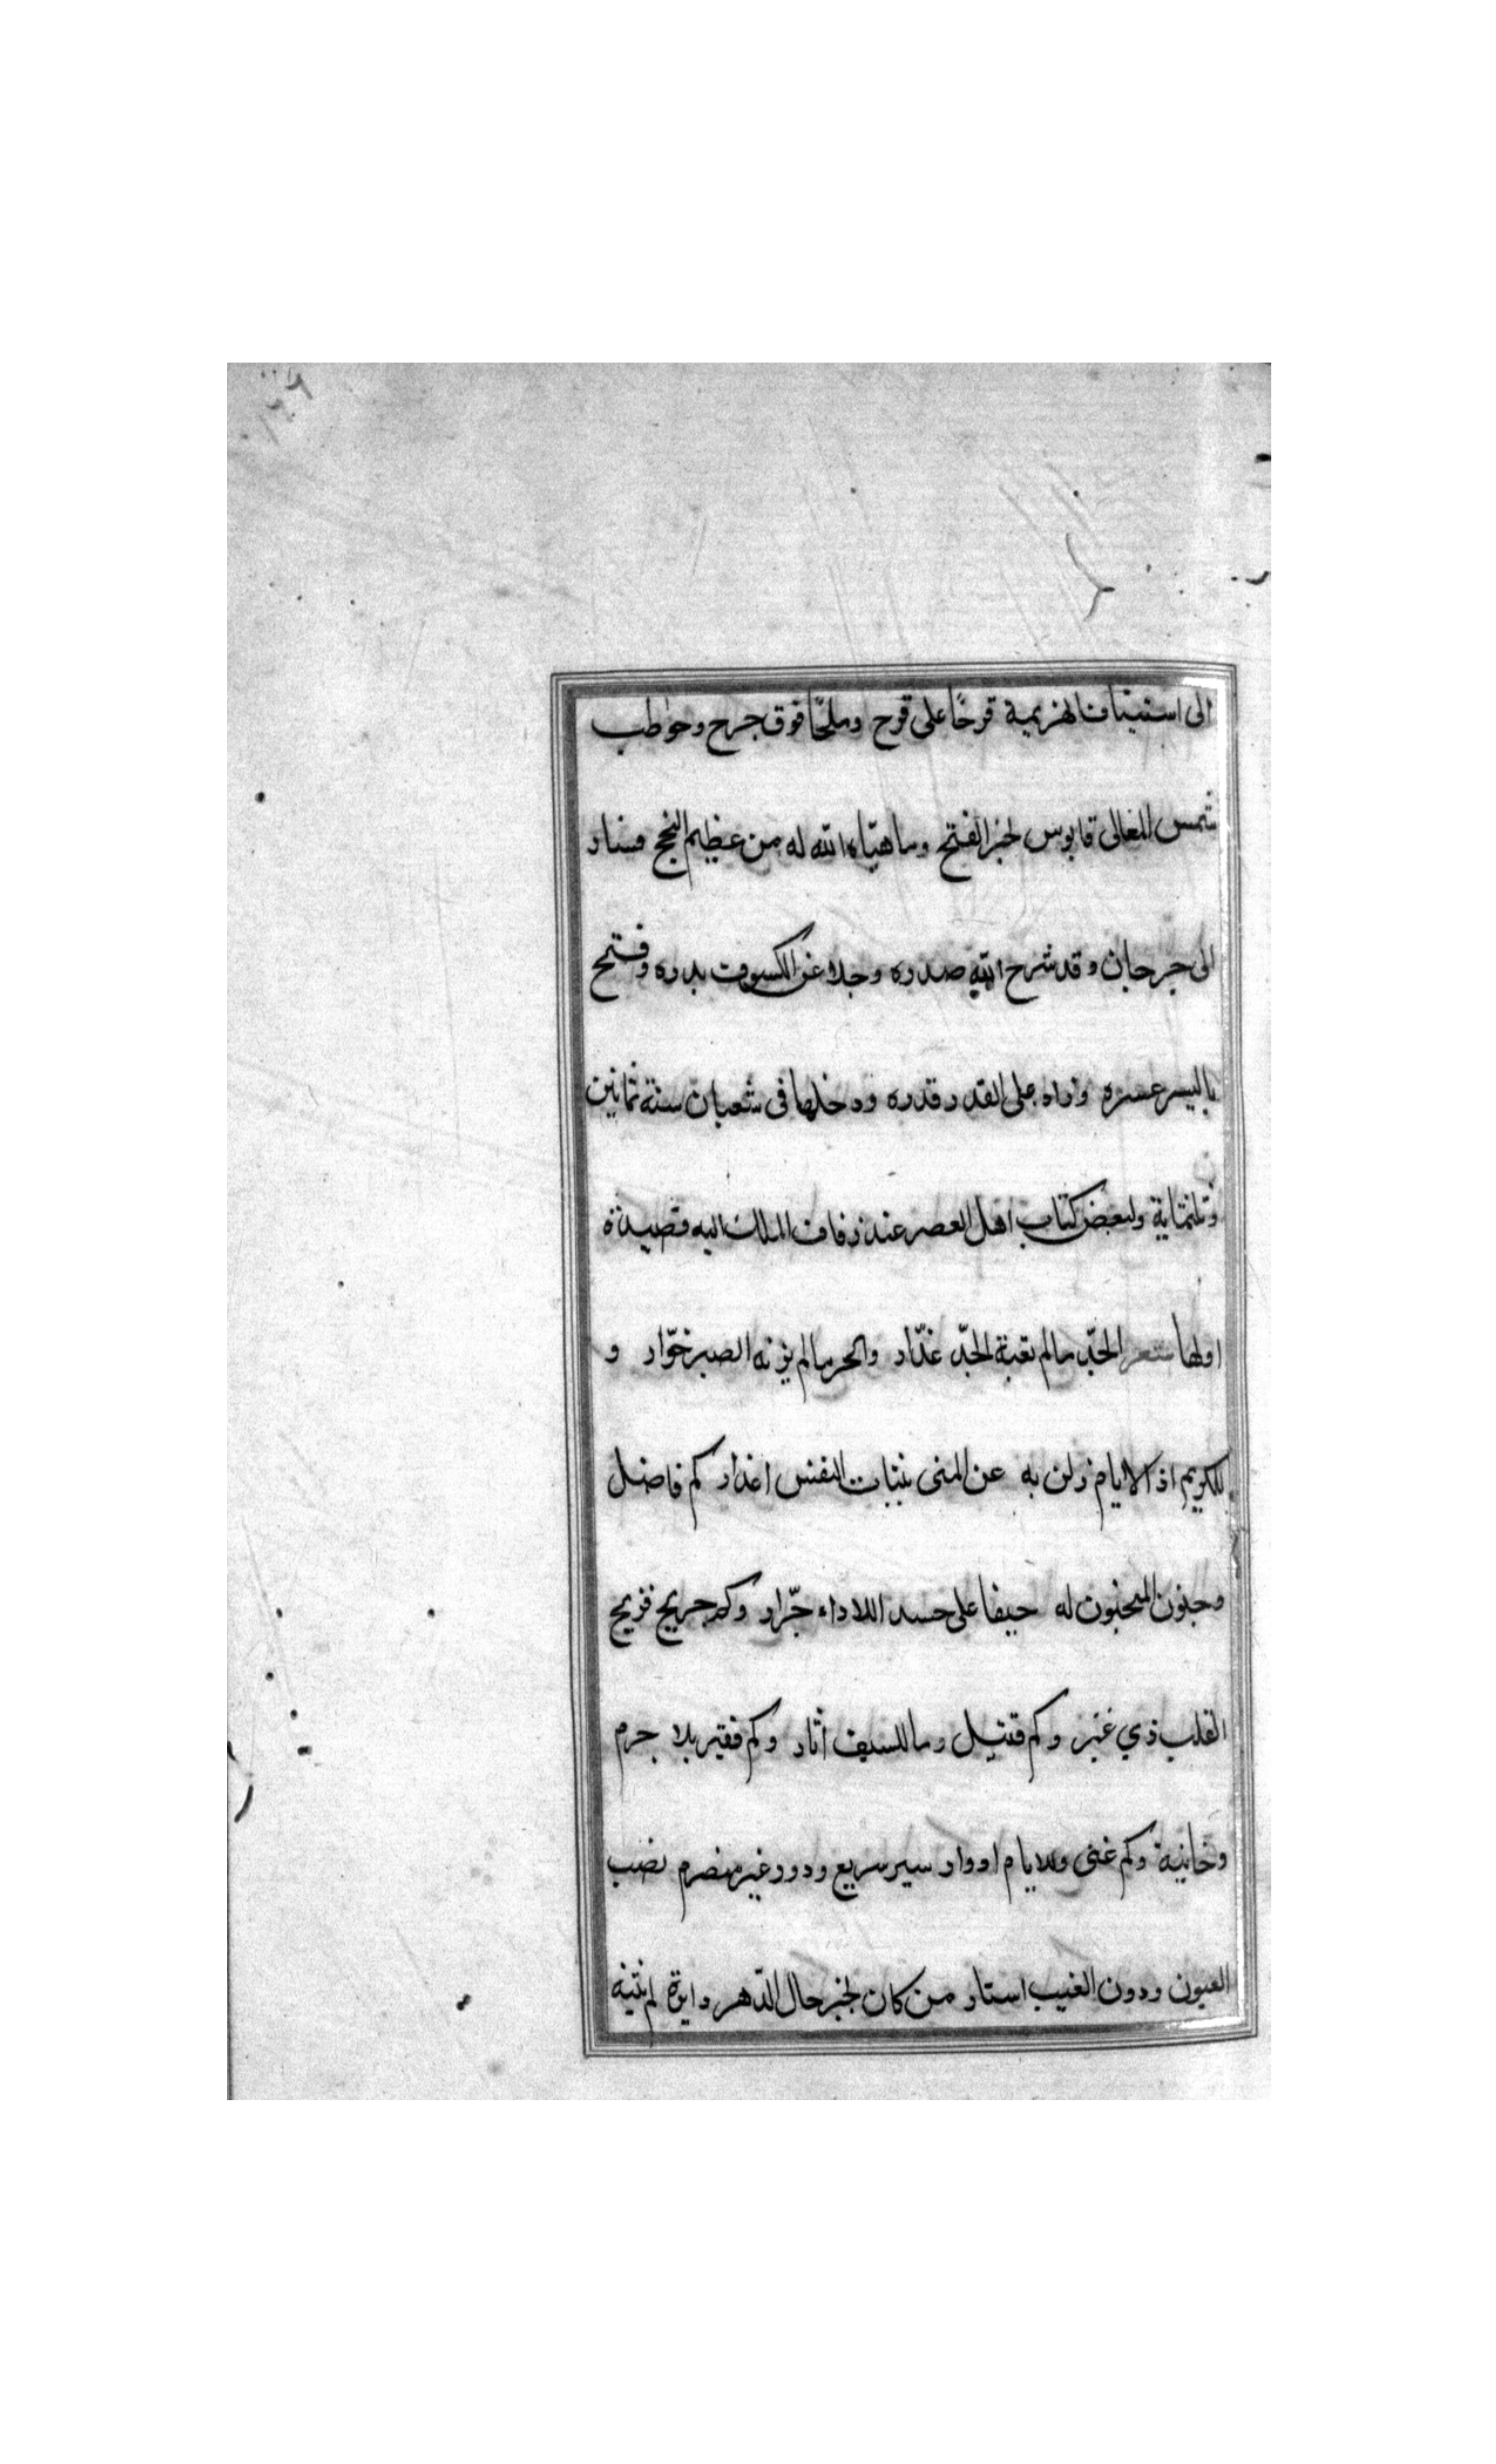 الى استيناف الهزيمة قرحًا على قرح وملحًا فوق جرح وخوطب
شمس المعالى قابوس لخبر الفتح وما هيّاه الله له من عظيم النجح فسار
الى جرجان وقد شرح الله صدره وجلا عن الكسوف بدره وفتح
باليسر عسره واراه على القدر قدره ودخلها فى شعبان سنة ثمانين
وثلثماية ولبعض كتاب اهل العصر عند زفاف الملك اليه قصيدة
اولها شعر الجدّ مالم تعبة الجدّ غدّار والحر مالم يزنه الصبر خوّار و
للكريم اذ الايام زلن به عن المنى بثبات النفس اعذار كم فاضل
وجنون له حيفا على حسد اللاداء جرّار وكم جريح قريح
القلب ذي غير وكم قتيل وما للسيف آثار وكم فقير بلا جرم
وخانية وكم غنى وللايام ادوار سير سريع ودور غير منصرم نصب
العيون ودون الغيب استار من كان لخبر حال الدّهر دايرة لم يثنه